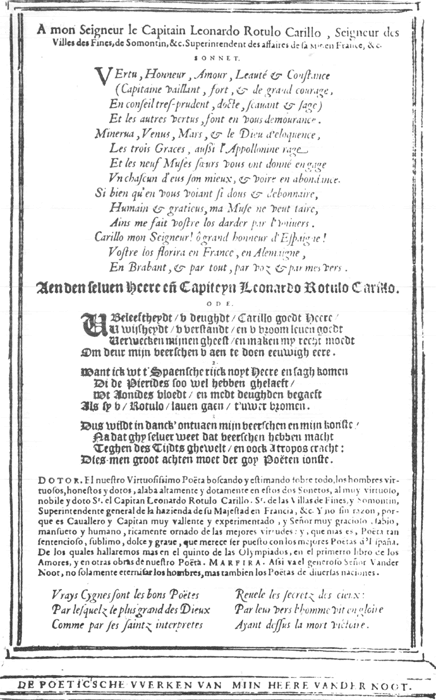 A mon Seigneur le Capitain Leonardo Rotulo Carillo, Seigneur des
Villes des Fines, de Somontin, &c. Superintendent des affaires de sa M. en France, &c.
SONNET.
VErtu, Honneur, Amour, Leauté & Constance
(Capitaine vaillant, fort, & de grand courage,
En conseil tres-prudent, docte, scauant & sage)
Et les autres vertus, font en vous demourance.
Minerua, Venus, Mars, & le Dieu d'eloquence,
Les trois Graces, aussi l'Appollonine rage
Et les neuf Muses sœurs vous ont donné engage
Vn chascun d'eus son mieux, & voire en abondance.
Si bien qu'en vous voiant si dous & debonnaire,
Humain & gratieus, ma Muse ne veut taire,
Ains me fait vostre los darder par l'Vniuers.
Carillo mon Seigneur! ô grand honneur d'Espaigne!
Vostre los florira en France, en Alemaigne,
En Brabant, & par tout, par voz & par mes vers.
Aen den seluen Heere eñ Capiteyn Leonardo Rotulo Carillo.
ODE.
UBeleeftheydt / v deughdt / Carillo goedt Heere /
U wijsheydt / v verstandt / en v vroom leuen goedt
Verwecken mijnen gheest / en maken my recht moedt
Om deur mijn veerschen v aen te doen eeuwigh eere.
2.
Want ick wt t'Spaensche rijck noyt Heere en sagh komen
Di de Pierides soo wel hebben ghelaeft /
Wt Aonides vloedt / en medt deughden begaeft
Als sy v / Rotulo / lauen gaen / t'uwer vromen.
3.
Dus wildt in danck ontuaen mijn veerschen en mijn konste /
Na dat ghy seluer weet dat veerschen hebben macht
Teghen des Tijdts ghewelt / en oock Atropos cracht:
Dies men groot achten moet der goy Poëten ionste.
DOTOR. El nuestro Virtuosissimo Poëta boscando y estimando sobre todo, los hombres vir-
tuosos, honestos y dotos, alaba altamente y dotamente en estos dos Sonetos, al muy Virtuoso,
nobile y doto Sr. el Capitan Leonardo Rotulo Carillo. Sr. de las Villas de Fines, y Somontin,
Superintendente general de la hazienda de su Majestad en Francia, &c. Y no sin razon, por-
que es Cauallero y Capitan muy valiente y experimentado, y Señor muy gracioso, sabio,
mansueto y humano, ricamente ornado de las mejores virtudes: y, que mas es, Poëta tan
sentencioso, sublimo, dolce y graue, que merece ser puesto con los mejores Poëtas d'España.
De los quales hallaremos mas en el quinto de las Olympiados, en el primero libro de los
Amores, y en otras obras de nuestro Poëta. MARFIRA. Assi va el generoso Señor Vander
Noot, no solamente eternisar los hombres, mas tambien los Poëtas de diuersas naciones.
Vrays Cygnes sont les bons Poëtes
Par lesquelz le plus grand des Dieux
Comme par ses saintz interpretes
Reuele les secretz des cieux:
Par leur vers l'homme vit en gloire
Ayant dessus la mort victoire.
DE POETICSCHE VVERKEN VAN MIJN HEERE VANDER NOOT.